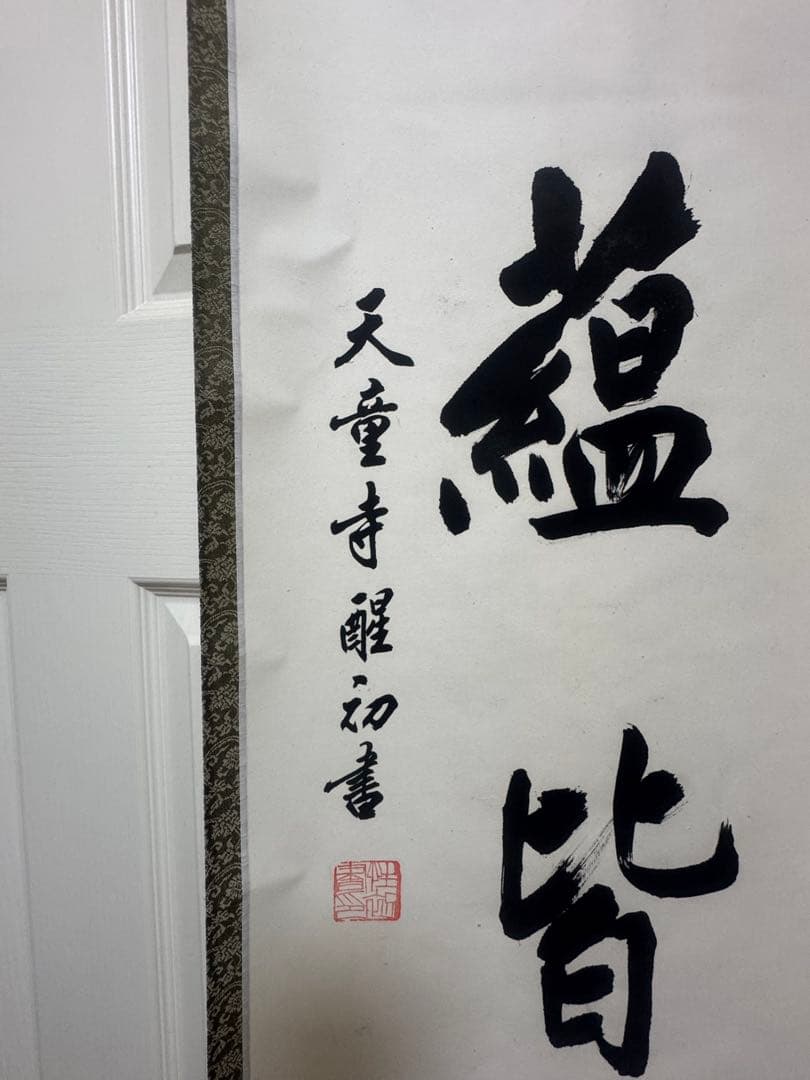 藴皆
天童寺醒初書